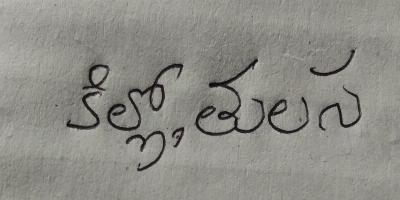 కిల్లో, తులస